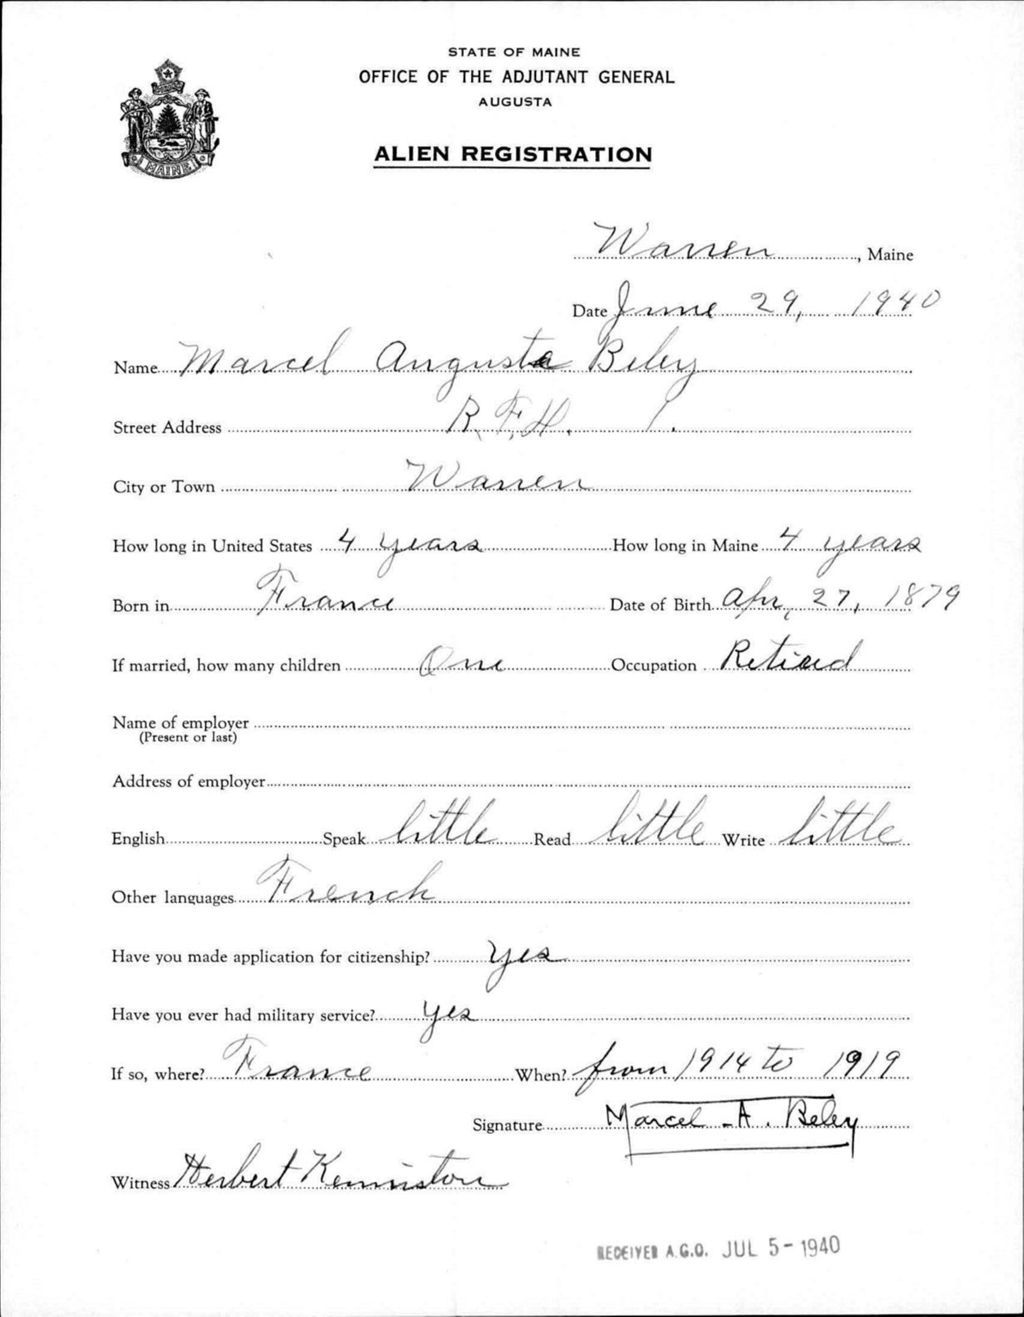 STATE OF MAINE
OFFICE OF THE ADJUTANT GENERAL
AUGUSTA
ALIEN REGISTRATION
MAINE
Warren, Maine
Date June 29, 1940
Name Marcel Auguste Beley
Street Address R.F.D. 1.
City or Town Warren
How long in United States 4 years How long in Maine 4 years
Born in France Date of Birth Apr, 27, 1879
If married, how many children One Occupation Retired
Name of employer
(Present or last)
Address of employer
English Speak little Read little Write little
Other languages French
Have you made application for citizenship? Yes
Have you ever had military service? Yes
If so, where? France When? from 1914 to 1919
Signature Marcel A. Beley
Witness Herbert Kenniston
RECEIVED A.G.O. JUL 5 - 1940